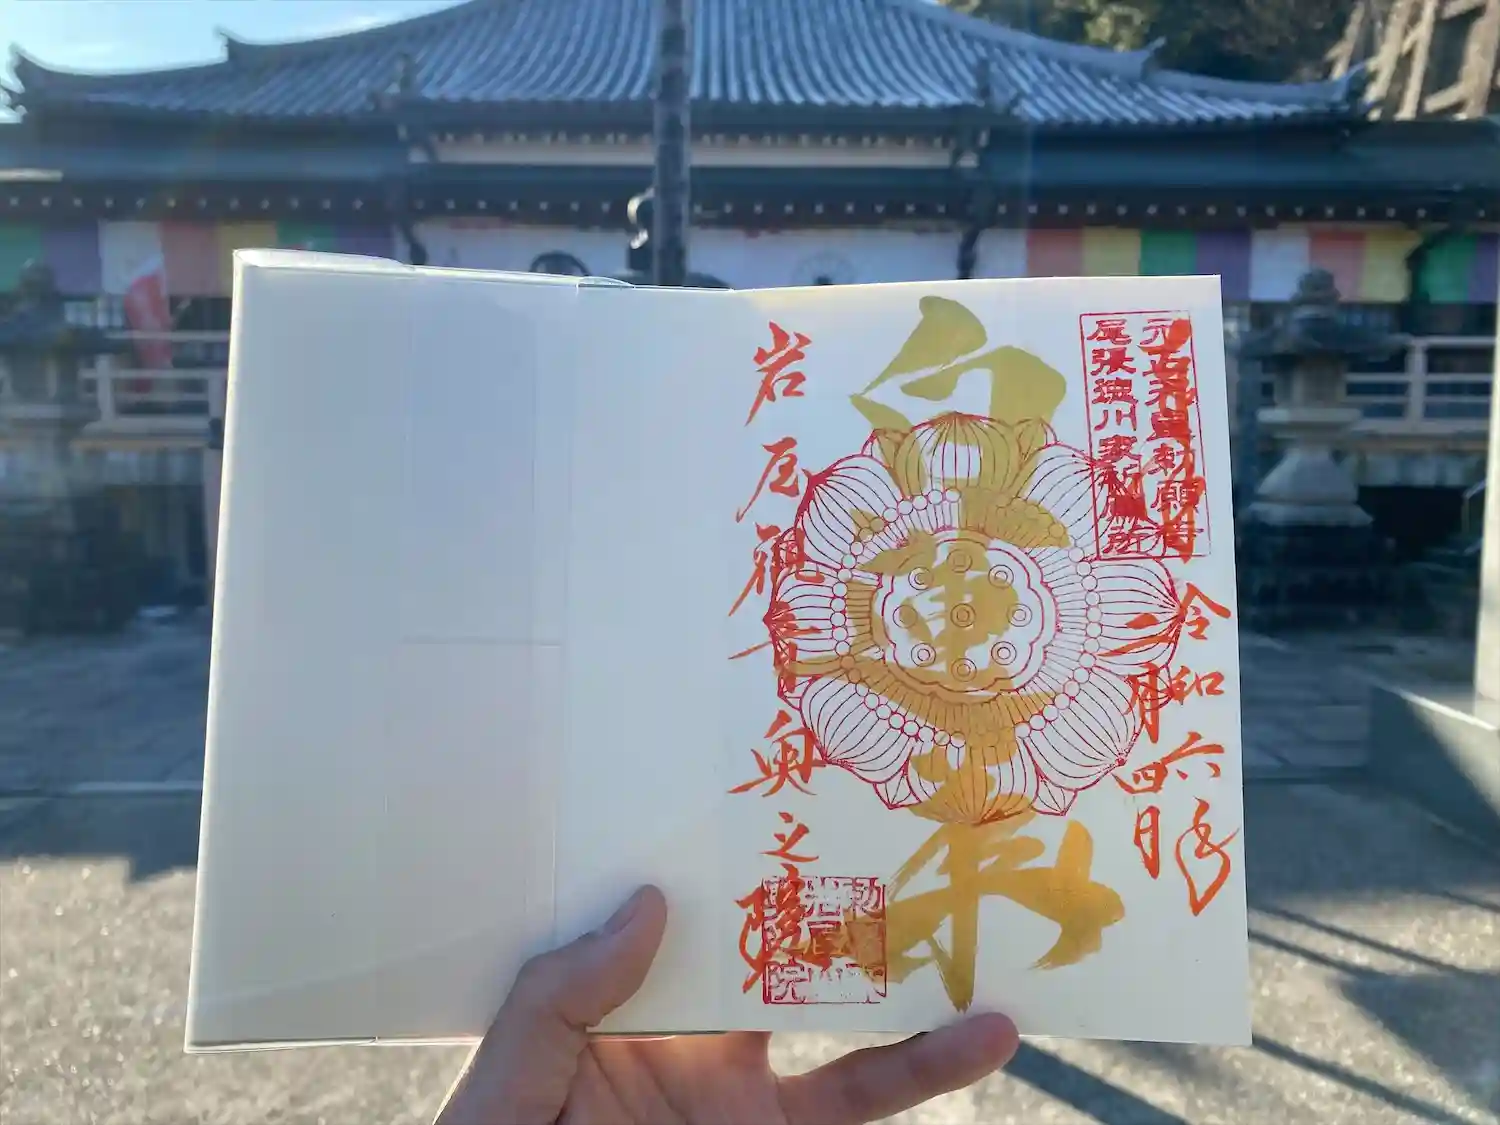 元正天皇勅願
尾張徳川家祈願所
令和六年
二月四日
白蓮華
岩屋観音奥之院